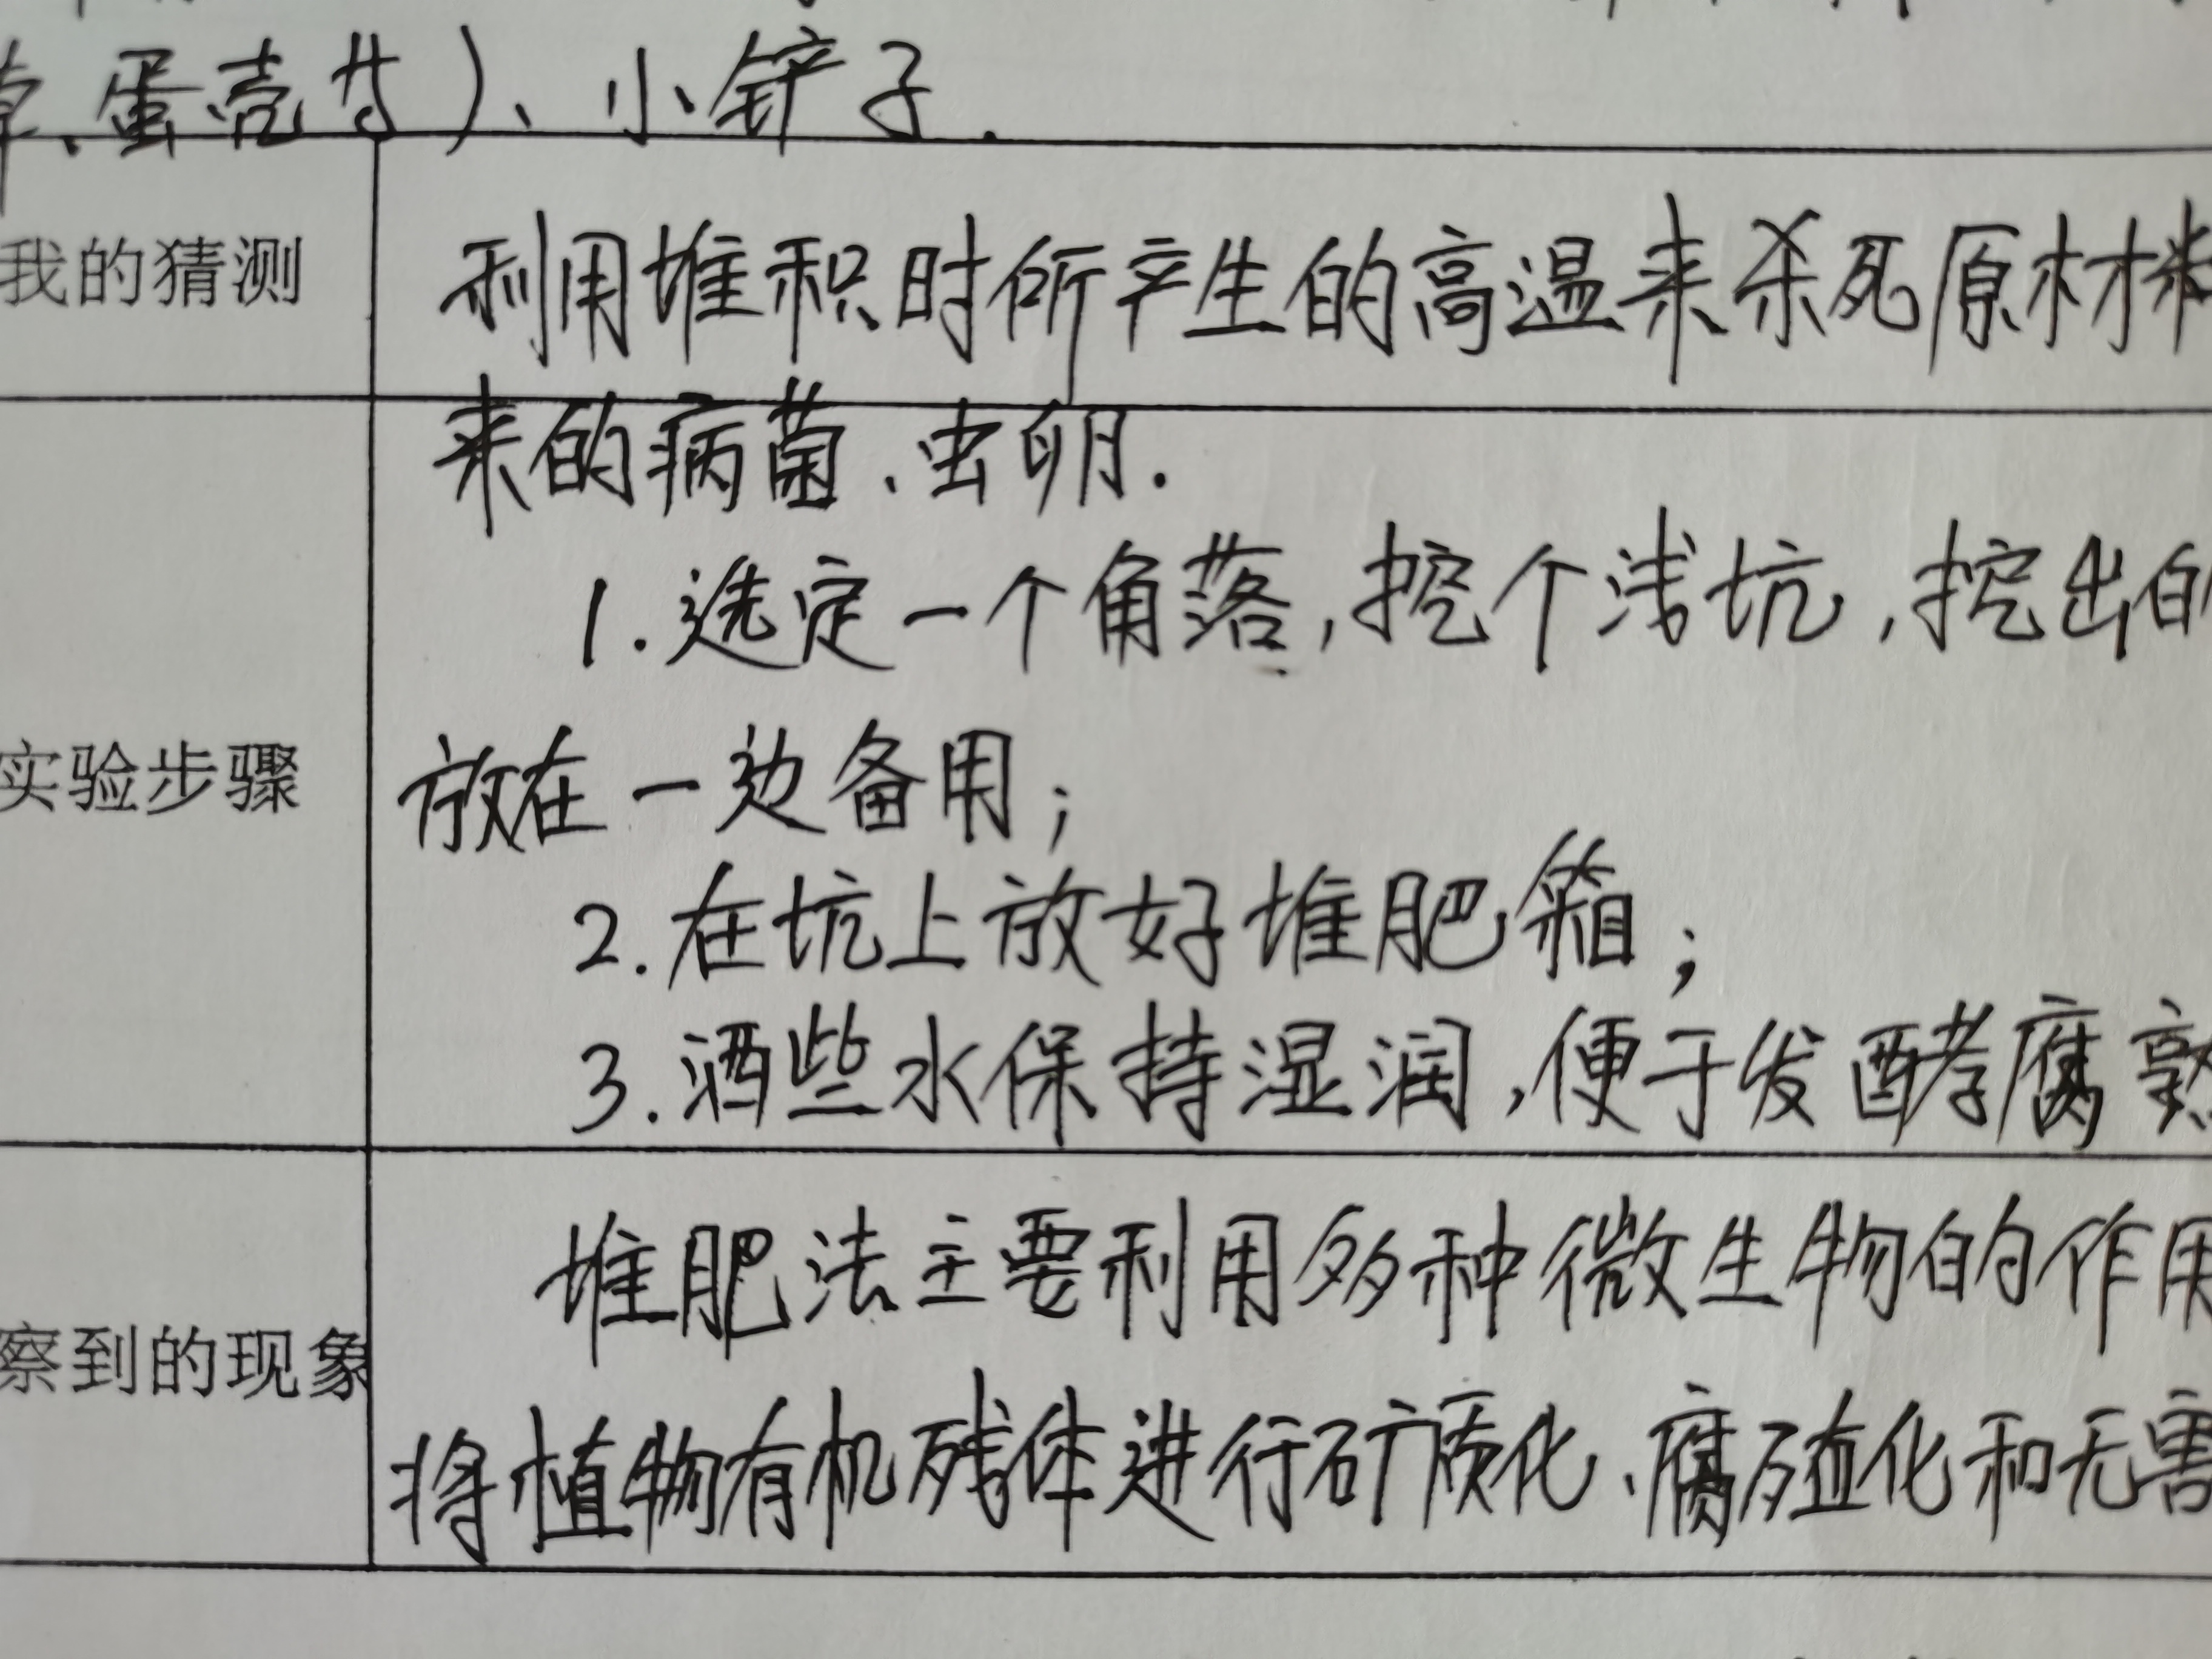 、蛋壳等)、小铲子.
我的猜测
利用堆积时所产生的高温来杀死原材料
来的病菌、虫卵.
1.选定一个角落,挖个浅坑,挖出的
放在一边备用;
实验步骤
2.在坑上放好堆肥箱;
3.洒些水保持湿润,便于发酵腐熟
堆肥法主要利用多种微生物的作用
察到的现象
将植物有机残体进行矿质化、腐殖化和无害